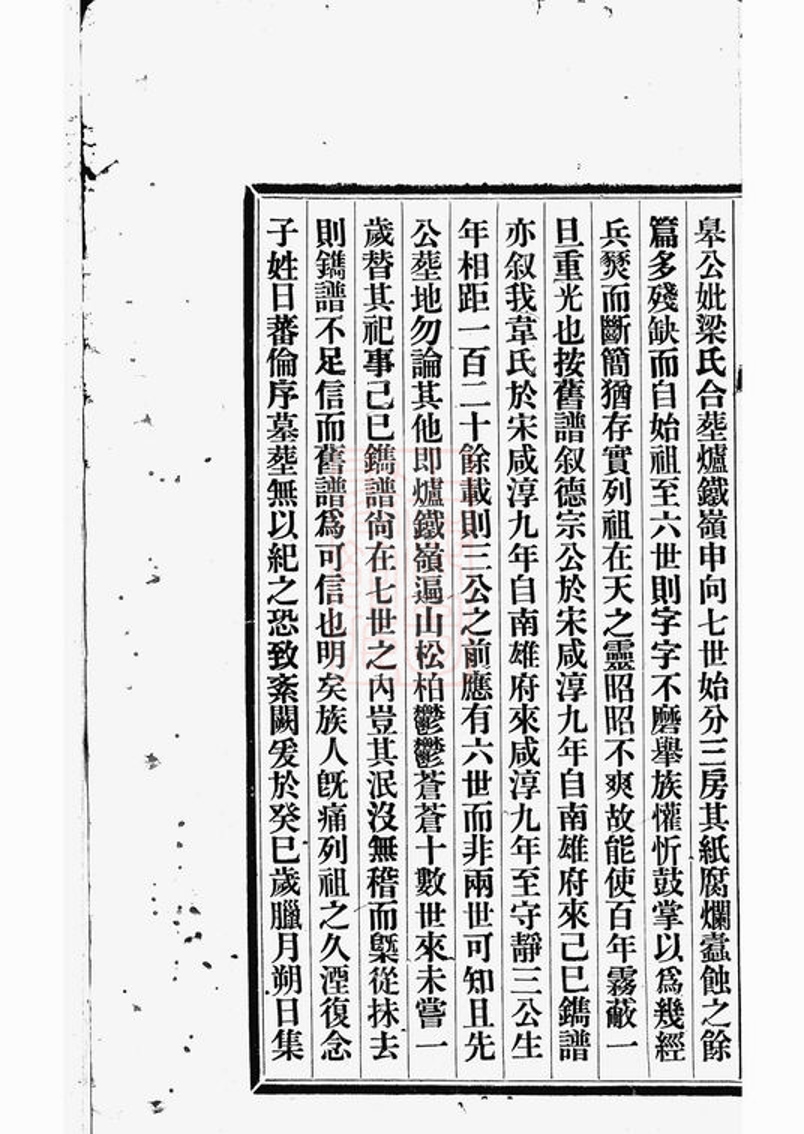 皋公妣梁氏合塟爐鐵嶺申向七世始分三房其紙腐爛蠧蝕之餘
篇多殘缺而自始祖至六世則字字不磨舉族懽忻鼓掌以爲幾經
兵燹而斷簡猶存實列祖在天之靈昭昭不爽故能使百年霧蔽一
旦重光也按舊譜叙德宗公於宋咸淳九年自南雄府來己巳鐫譜
亦叙我韋氏於宋咸淳九年自南雄府來咸淳九年至守靜三公生
年相距一百二十餘載則三公之前應有六世而非兩世可知且先
公塟地勿論其他即爐鐵嶺遍山松柏鬱鬱蒼蒼十數世來未嘗一
歲替其祀事己巳鐫譜尙在七世之內豈其泯沒無稽而槩從抹去
則鐫譜不足信而舊譜爲可信也明矣族人旣痛列祖之久湮復念
子姓日蕃倫序墓塟無以紀之恐致紊闕爰於癸巳歲臘月朔日集